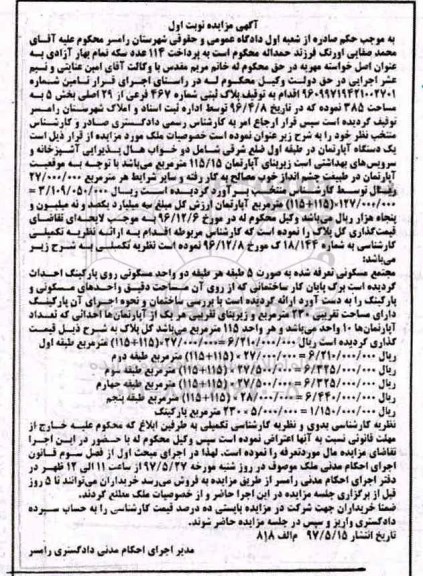 آگهی مزایده نوبت اول
به موجب حکم صادره از شعبه اول دادگاه عمومی و حقوقی شهرستان رامسر محکوم علیه آقای
محمد صفایی اورنگ فرزند حمداله محکوم است به پرداخت ۱۱۴ عدد سکه تمام بهار آزادی به
عنوان اصل خواسته مهریه در حق محکوم له خانم مریم مقدس با وکالت آقای امین عنایتی و نیم
عشر اجرایی در حق دولت وکیل محکوم له در راستای اجرای قرار تامین شماره
۹۶۰۹۹۷۱۹۴۲۱۰۰۲۷۰۱ اقدام به توقیف پلاک ثبتی شماره ۴۶۷ فرعی از ۲۹ اصلی بخش ۵ به
مساحت ۳۸۵ نموده که در تاریخ ۹۶/۴/۸ توسط اداره ثبت اسناد و املاک شهرستان رامسر
توقیف گردیده است سپس قرار ارجاع امر به کارشناس رسمی دادگستری صادر و کارشناس
منتخب نظر خود را به شرح زیر عنوان نموده است خصوصیات ملک مورد مزایده از قرار ذیل است
یک دستگاه آپارتمان در طبقه اول ضلع شرقی شامل دو خواب هال پذیرایی آشپزخانه و
سرویس‌های بهداشتی است زیربنای آپارتمان ۱۱۵/۱۵ مترمربع می‌باشد با توجه به موقعیت
آپارتمان در طبیعت چشم انداز خوب مصالح به کار رفته و سایر شرایط هر مترمربع ۲۷/۰۰۰/۰۰۰
ریال توسط کارشناس منتخب برآورد گردیده است ریال ۳/۱۰۹/۰۵۰/۰۰۰ =
۲۷/۰۰۰/۰۰۰×(۱۱۵+۱۱۵) مترمربع آپارتمان ارزش کل مبلغ سه میلیارد یکصد و نه میلیون و
پنجاه هزار ریال می‌باشد وکیل محکوم له در مورخ ۹۶/۱۲/۶ به موجب لایحه‌ای تقاضای
قیمت‌گذاری کل پلاک را نموده است که کارشناس مربوطه اقدام به ارائه نظریه تکمیلی
کارشناسی به شماره ۱۸/۱۴۴ ک مورخ ۹۶/۱۲/۸ نموده است نظریه تکمیلی به شرح زیر
می‌باشد:
مجتمع مسکونی تعرفه شده به صورت ۵ طبقه هر طبقه دو واحد مسکونی روی پارکینگ احداث
گردیده است برگ پایان کار ساختمانی که از روی آن مساحت دقیق واحدهای مسکونی و
پارکینگ را به دست آورد ارائه گردیده است با بررسی ساختمان و نحوه اجرای آن پارکینگ
دارای مساحت تقریبی ۲۳۰ مترمربع و زیربنای تقریبی هر یک از آپارتمان‌ها احداثی که تعداد
آپارتمان‌ها ۱۰ واحد می‌باشد و هر واحد ۱۱۵ مترمربع می‌باشد کل پلاک به شرح ذیل قیمت
گذاری گردیده است ریال ۶/۲۱۰/۰۰۰/۰۰۰=۲۷/۰۰۰/۰۰۰×(۱۱۵+۱۱۵) مترمربع طبقه اول
ریال ۶/۲۱۰/۰۰۰/۰۰۰ = ۲۷/۰۰۰/۰۰۰ × (۱۱۵+۱۱۵) مترمربع طبقه دوم
ریال ۶/۳۲۵/۰۰۰/۰۰۰ = ۲۷/۵۰۰/۰۰۰ × (۱۱۵+۱۱۵) مترمربع طبقه سوم
ریال ۶/۳۲۵/۰۰۰/۰۰۰ = ۲۷/۵۰۰/۰۰۰ × (۱۱۵+۱۱۵) مترمربع طبقه چهارم
ریال ۶/۴۴۰/۰۰۰/۰۰۰ = ۲۸/۰۰۰/۰۰۰ × (۱۱۵+۱۱۵) مترمربع طبقه پنجم
ریال ۱/۱۵۰/۰۰۰/۰۰۰ = ۵/۰۰۰/۰۰۰ × ۲۳۰ مترمربع پارکینگ
نظریه کارشناسی بدوی و نظریه کارشناسی تکمیلی به طرفین ابلاغ که محکوم علیه خارج از
مهلت قانونی نسبت به آنها اعتراض نموده است سپس وکیل محکوم له با حضور در این اجرا
تقاضای مزایده مال موردتعرفه را نموده است. لهذا در اجرای مبحث اول از فصل سوم قانون
اجرای احکام مدنی ملک موصوف در روز شنبه مورخه ۹۷/۵/۲۷ از ساعت ۱۱ الی ۱۲ ظهر در
دفتر اجرای احکام مدنی رامسر از طریق مزایده به فروش می‌رسد خریداران می‌توانند تا ۵ روز
قبل از برگزاری جلسه مزایده در این اجرا حاضر و از خصوصیات ملک مطلع گردند.
ضمنا خریداران جهت شرکت در مزایده بایستی ده درصد قیمت کارشناسی را به حساب سپرده
دادگستری واریز و سپس در جلسه مزایده حاضر شوند.
تاریخ انتشار ۹۷/۵/۱۵ م‌الف ۸۱۸
مدیر اجرای احکام مدنی دادگستری رامسر